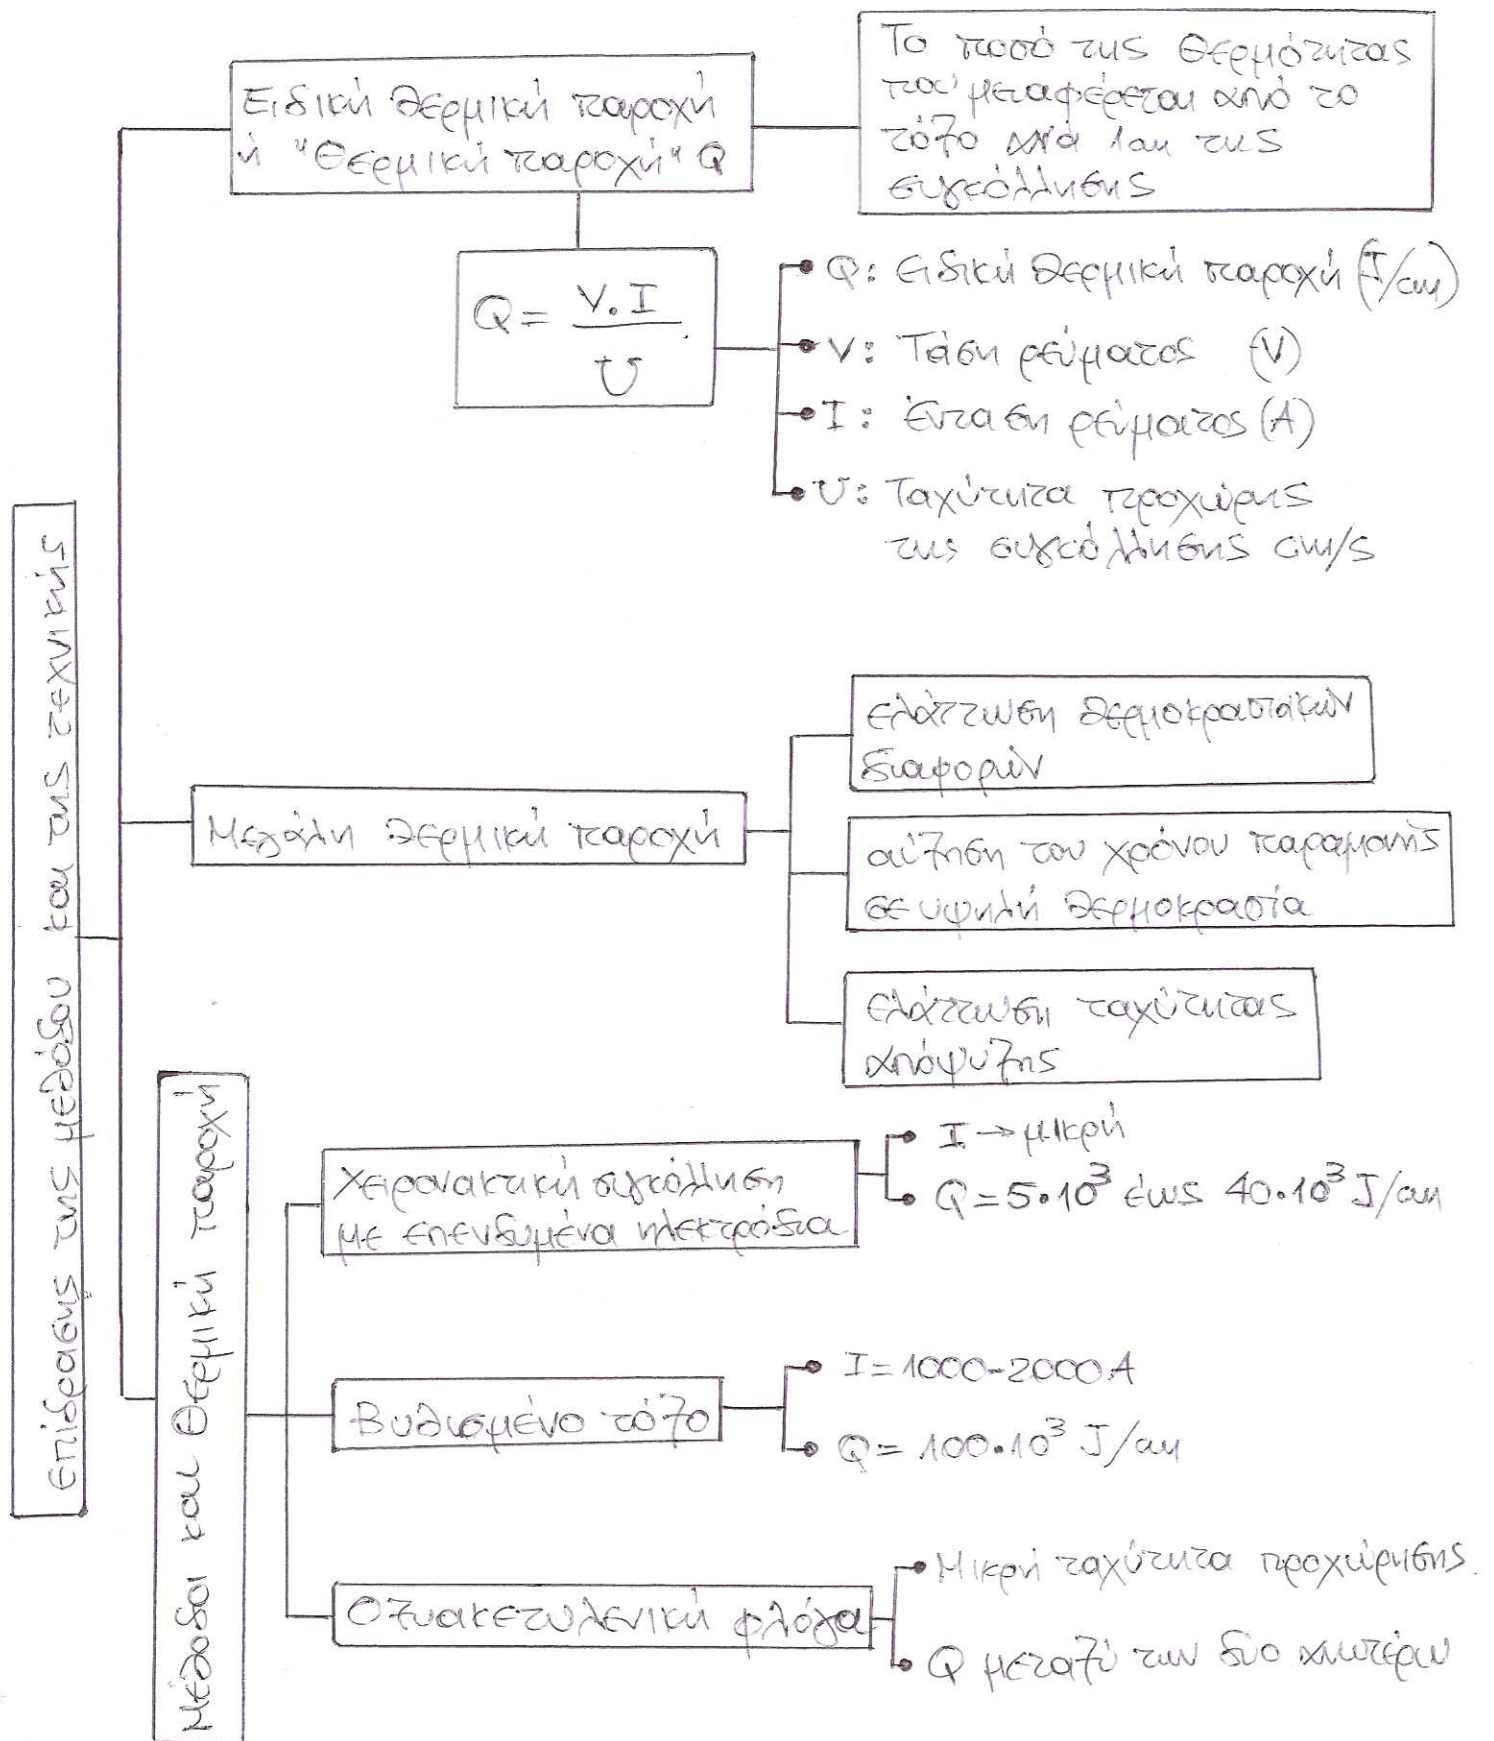 Επίδρασης της μεθόδου και της τεχνικής
Ειδική θερμική παροχή
ή "Θερμική παροχή" Q
Το ποσό της θερμότητας
που μεταφέρεται από το
τόξο ανά 1cm της
συγκόλλησης
Q = V.I / υ
Q: Ειδική θερμική παροχή (J/cm)
V: Τάση ρεύματος (V)
I: Ένταση ρεύματος (A)
υ: Ταχύτητα προχώρης
της συγκόλλησης cm/s
Μεγάλη θερμική παροχή
ελάττωση θερμοκρασιακών
διαφορών
αύξηση του χρόνου παραμονής
σε υψηλή θερμοκρασία
ελάττωση ταχύτητας
απόψυξης
Μέθοδοι και Θερμική παροχή
Χειρονακτική συγκόλληση
με επενδυμένα ηλεκτρόδια
I → μικρή
Q = 5.10³ έως 40.10³ J/cm
Βυθισμένο τόξο
I = 1000-2000A
Q = 100.10³ J/cm
Οξυακετυλενική φλόγα
Μικρή ταχύτητα προχώρησης.
Q μεταξύ των δύο ανωτέρω